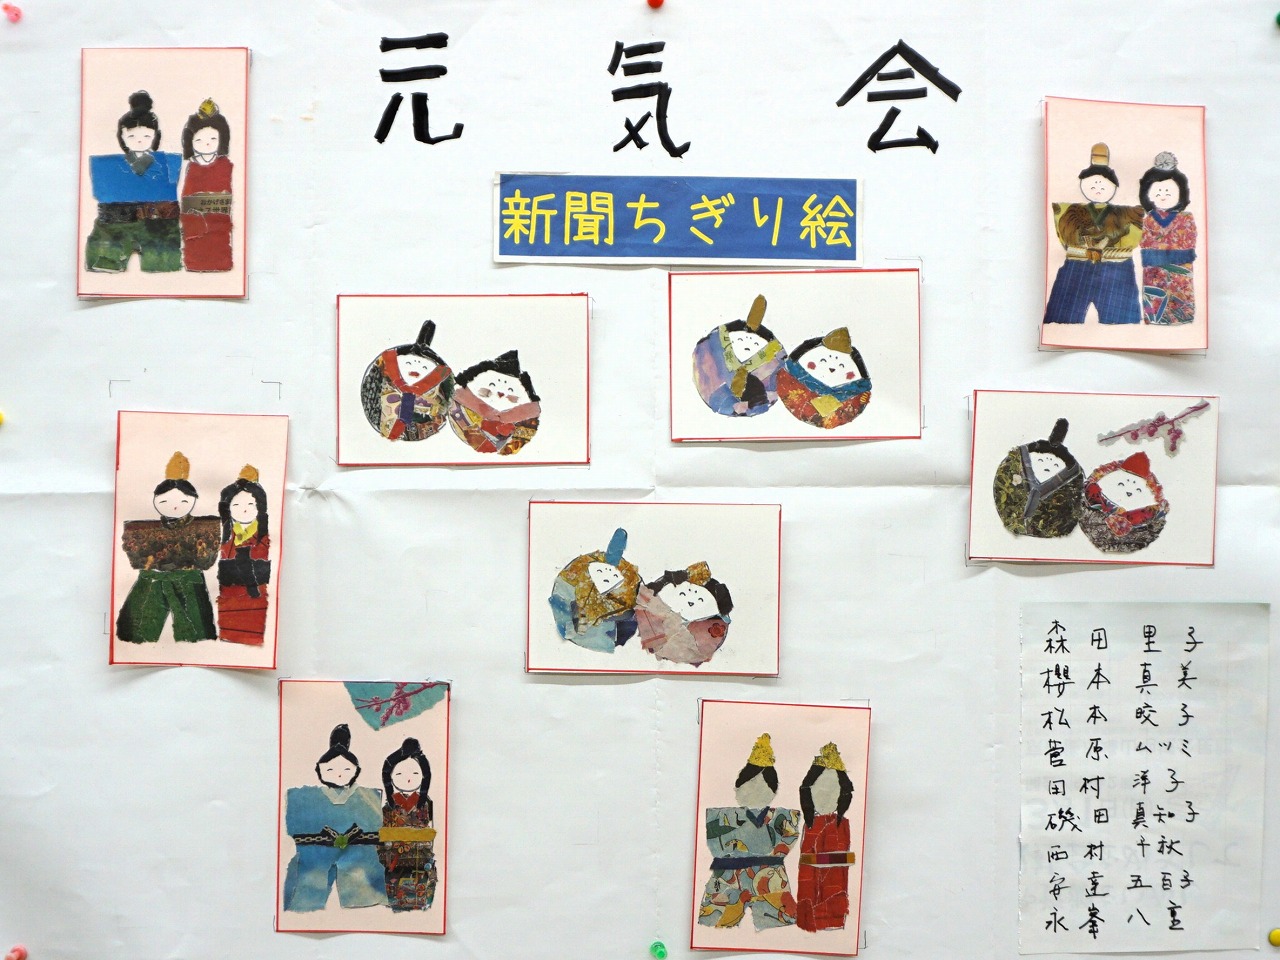 元気会
新聞ちぎり絵
森田里子
櫻本真美
松本皎子
菅原ムツミ
田村洋子
磯田真知子
西村千秋
安達五百子
永峯八重